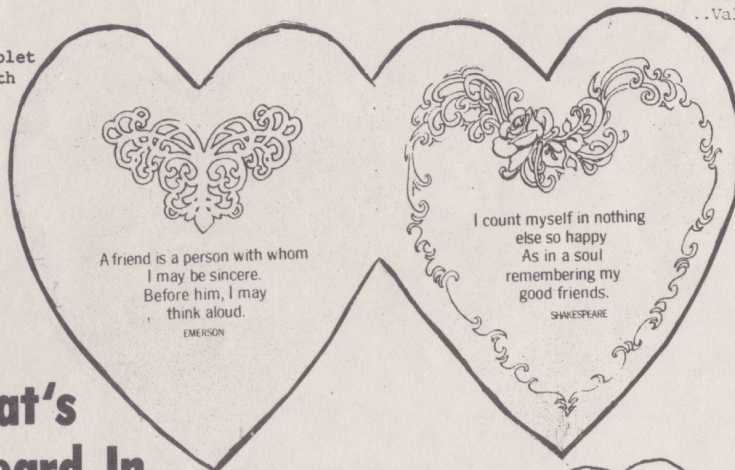 A friend is a person with whom
I may be sincere.
Before him, I may
think aloud.
EMERSON
I count myself in nothing
else so happy
As in a soul
remembering my
good friends.
SHAKESPEARE